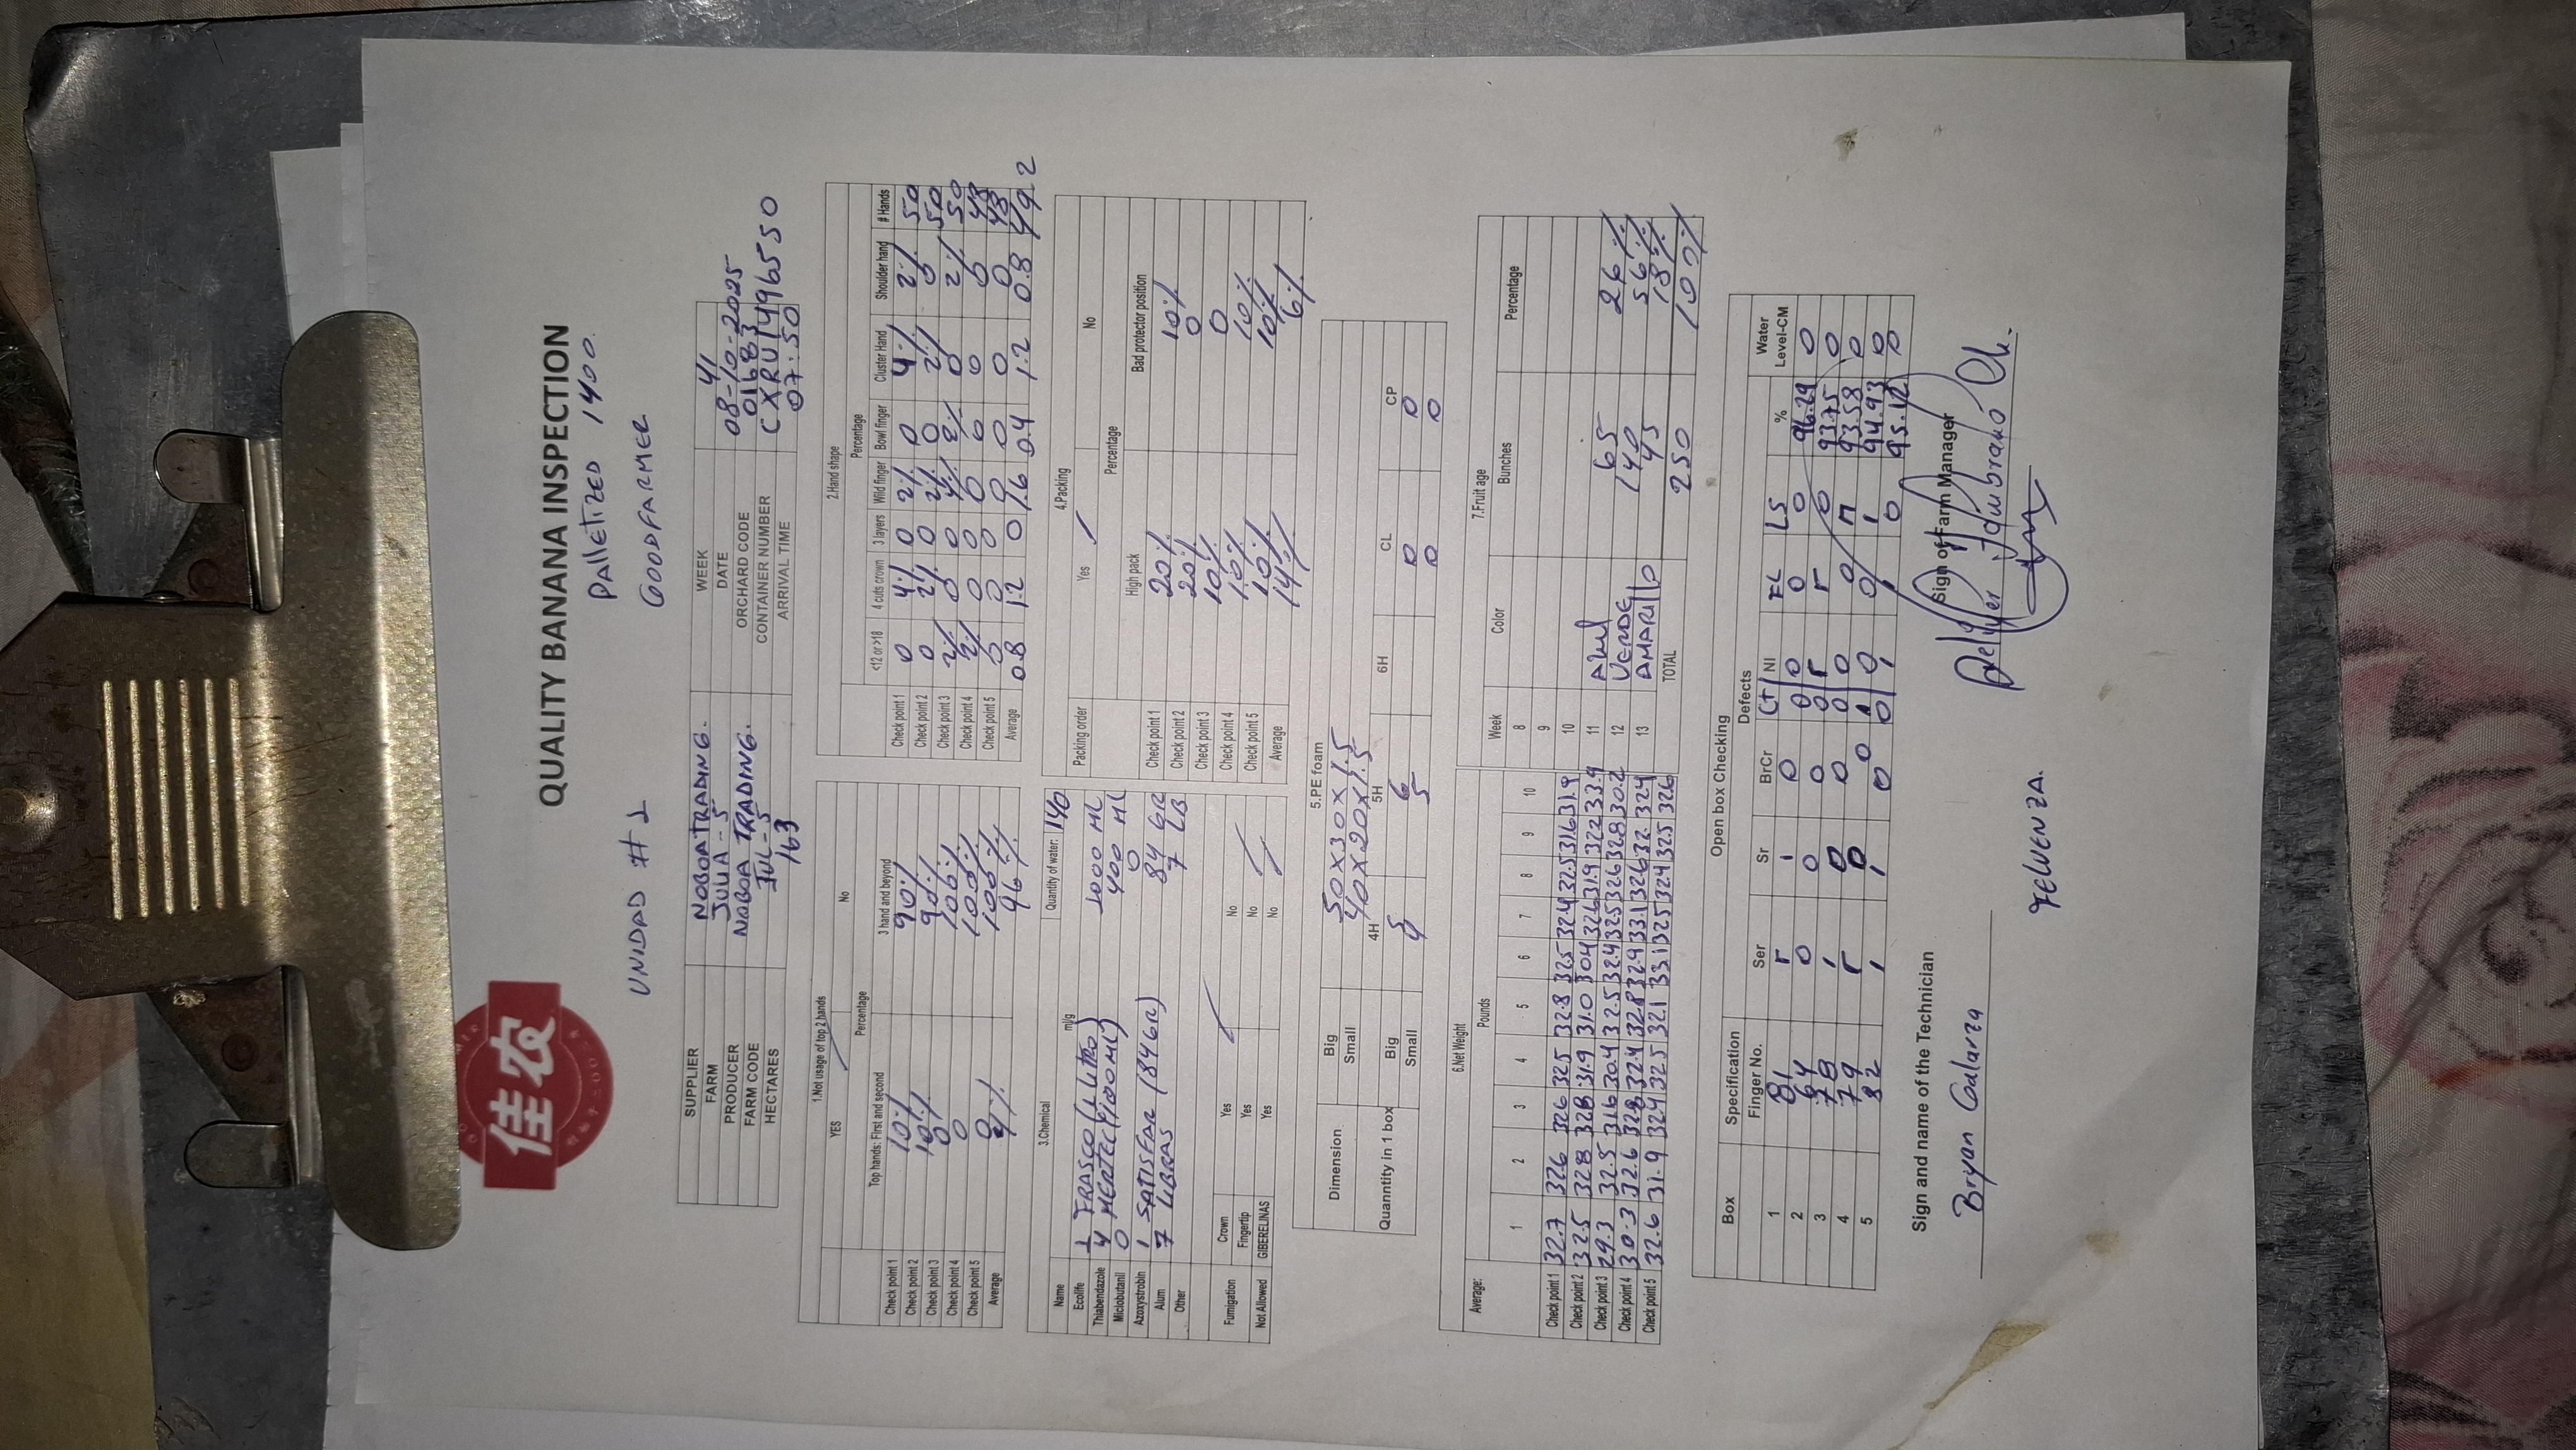 佳农
QUALITY BANANA INSPECTION
PALLETIZED 1400.
UNIDAD #1 GOODFARMER
SUPPLIER NOBOATRADING. WEEK 41
FARM JULIA-5 DATE 08-10-2025
PRODUCER NOBOA TRADING. ORCHARD CODE 01683
FARM CODE JUL-5 CONTAINER NUMBER CXRU1496550
HECTARES 163 ARRIVAL TIME 07:50
1.Not usage of top 2 hands
YES No
Percentage
Top hands: First and second 3 hand and beyond
Check point 1 10% 90%
Check point 2 10% 90%
Check point 3 0 100%
Check point 4 0 100%
Check point 5 0 100%
Average 4% 96%
2.Hand shape
Percentage
<12 or >18 4 cuts crown 3 layers Wild finger Bowl finger Cluster Hand Shoulder hand # Hands
Check point 1 0 4% 0 2% 0 4% 2% 50
Check point 2 0 2% 0 2% 0 2% 0 50
Check point 3 2% 0 0 4% 2% 0 2% 50
Check point 4 2% 0 0 0 0 0 0 48
Check point 5 0 0 0 0 0 0 0 48
Average 0.8 1.2 0 1.6 0.4 1.2 0.8 49.2
3.Chemical Quantity of water: 140
Name ml/g
Ecolife 1 FRASCO (1 Litro) 1000 ML
Thiabendazole 4 MERTEC (100ML) 400 ML
Miclobutanil 0 0
Azoxystrobin 1 SATISFAR (84GR) 84 GR
Alum 7 LIBRAS 7 LB
Other
Fumigation Crown Yes No
Fingertip Yes No
Not Allowed GIBERELINAS Yes No
4.Packing
Packing order Yes No
Percentage
High pack Bad protector position
Check point 1 20% 10%
Check point 2 20% 0
Check point 3 10% 0
Check point 4 10% 10%
Check point 5 10% 10%
Average 14% 6%
5.PE foam
Dimension Big 50x30x1.5
Small 40x20x1.5
Quanntity in 1 box 4H 5H 6H CL CP
Big 5 6 0 0
Small 4 5 0 0
6.Net Weight
Average: Pounds
1 2 3 4 5 6 7 8 9 10
Check point 1 32.7 32.6 32.6 32.5 32.8 32.5 32.4 32.5 31.6 31.9
Check point 2 32.5 32.8 32.8 31.9 31.0 30.4 32.6 31.9 32.2 33.4
Check point 3 29.3 32.5 31.6 30.4 32.5 32.4 32.5 32.6 32.8 30.2
Check point 4 30.3 32.6 32.8 32.4 32.8 32.9 33.1 32.6 32. 32.4
Check point 5 32.6 31.9 32.4 32.5 32.1 33.1 32.5 32.4 32.5 32.6
7.Fruit age
Week Color Bunches Percentage
8
9
10
11 Azul 65 26%
12 VERDE 140 56%
13 AMARILLO 45 18%
TOTAL 250 100%
Open box Checking
Box Specification Defects Water
Finger No. Ser Sr BrCr Ct NI FL LS % Level-CM
1 81 r 1 0 0 0 0 0 96.29 0
2 64 0 0 0 0 r r 0 93.75 0
3 78 1 0 0 0 0 0 n 93.58 0
4 79 r 0 0 1 0 0 1 94.93 0
5 82 1 1 0 0 1 1 0 95.12 0
Sign and name of the Technician Sign of Farm Manager
Bryan Galarza